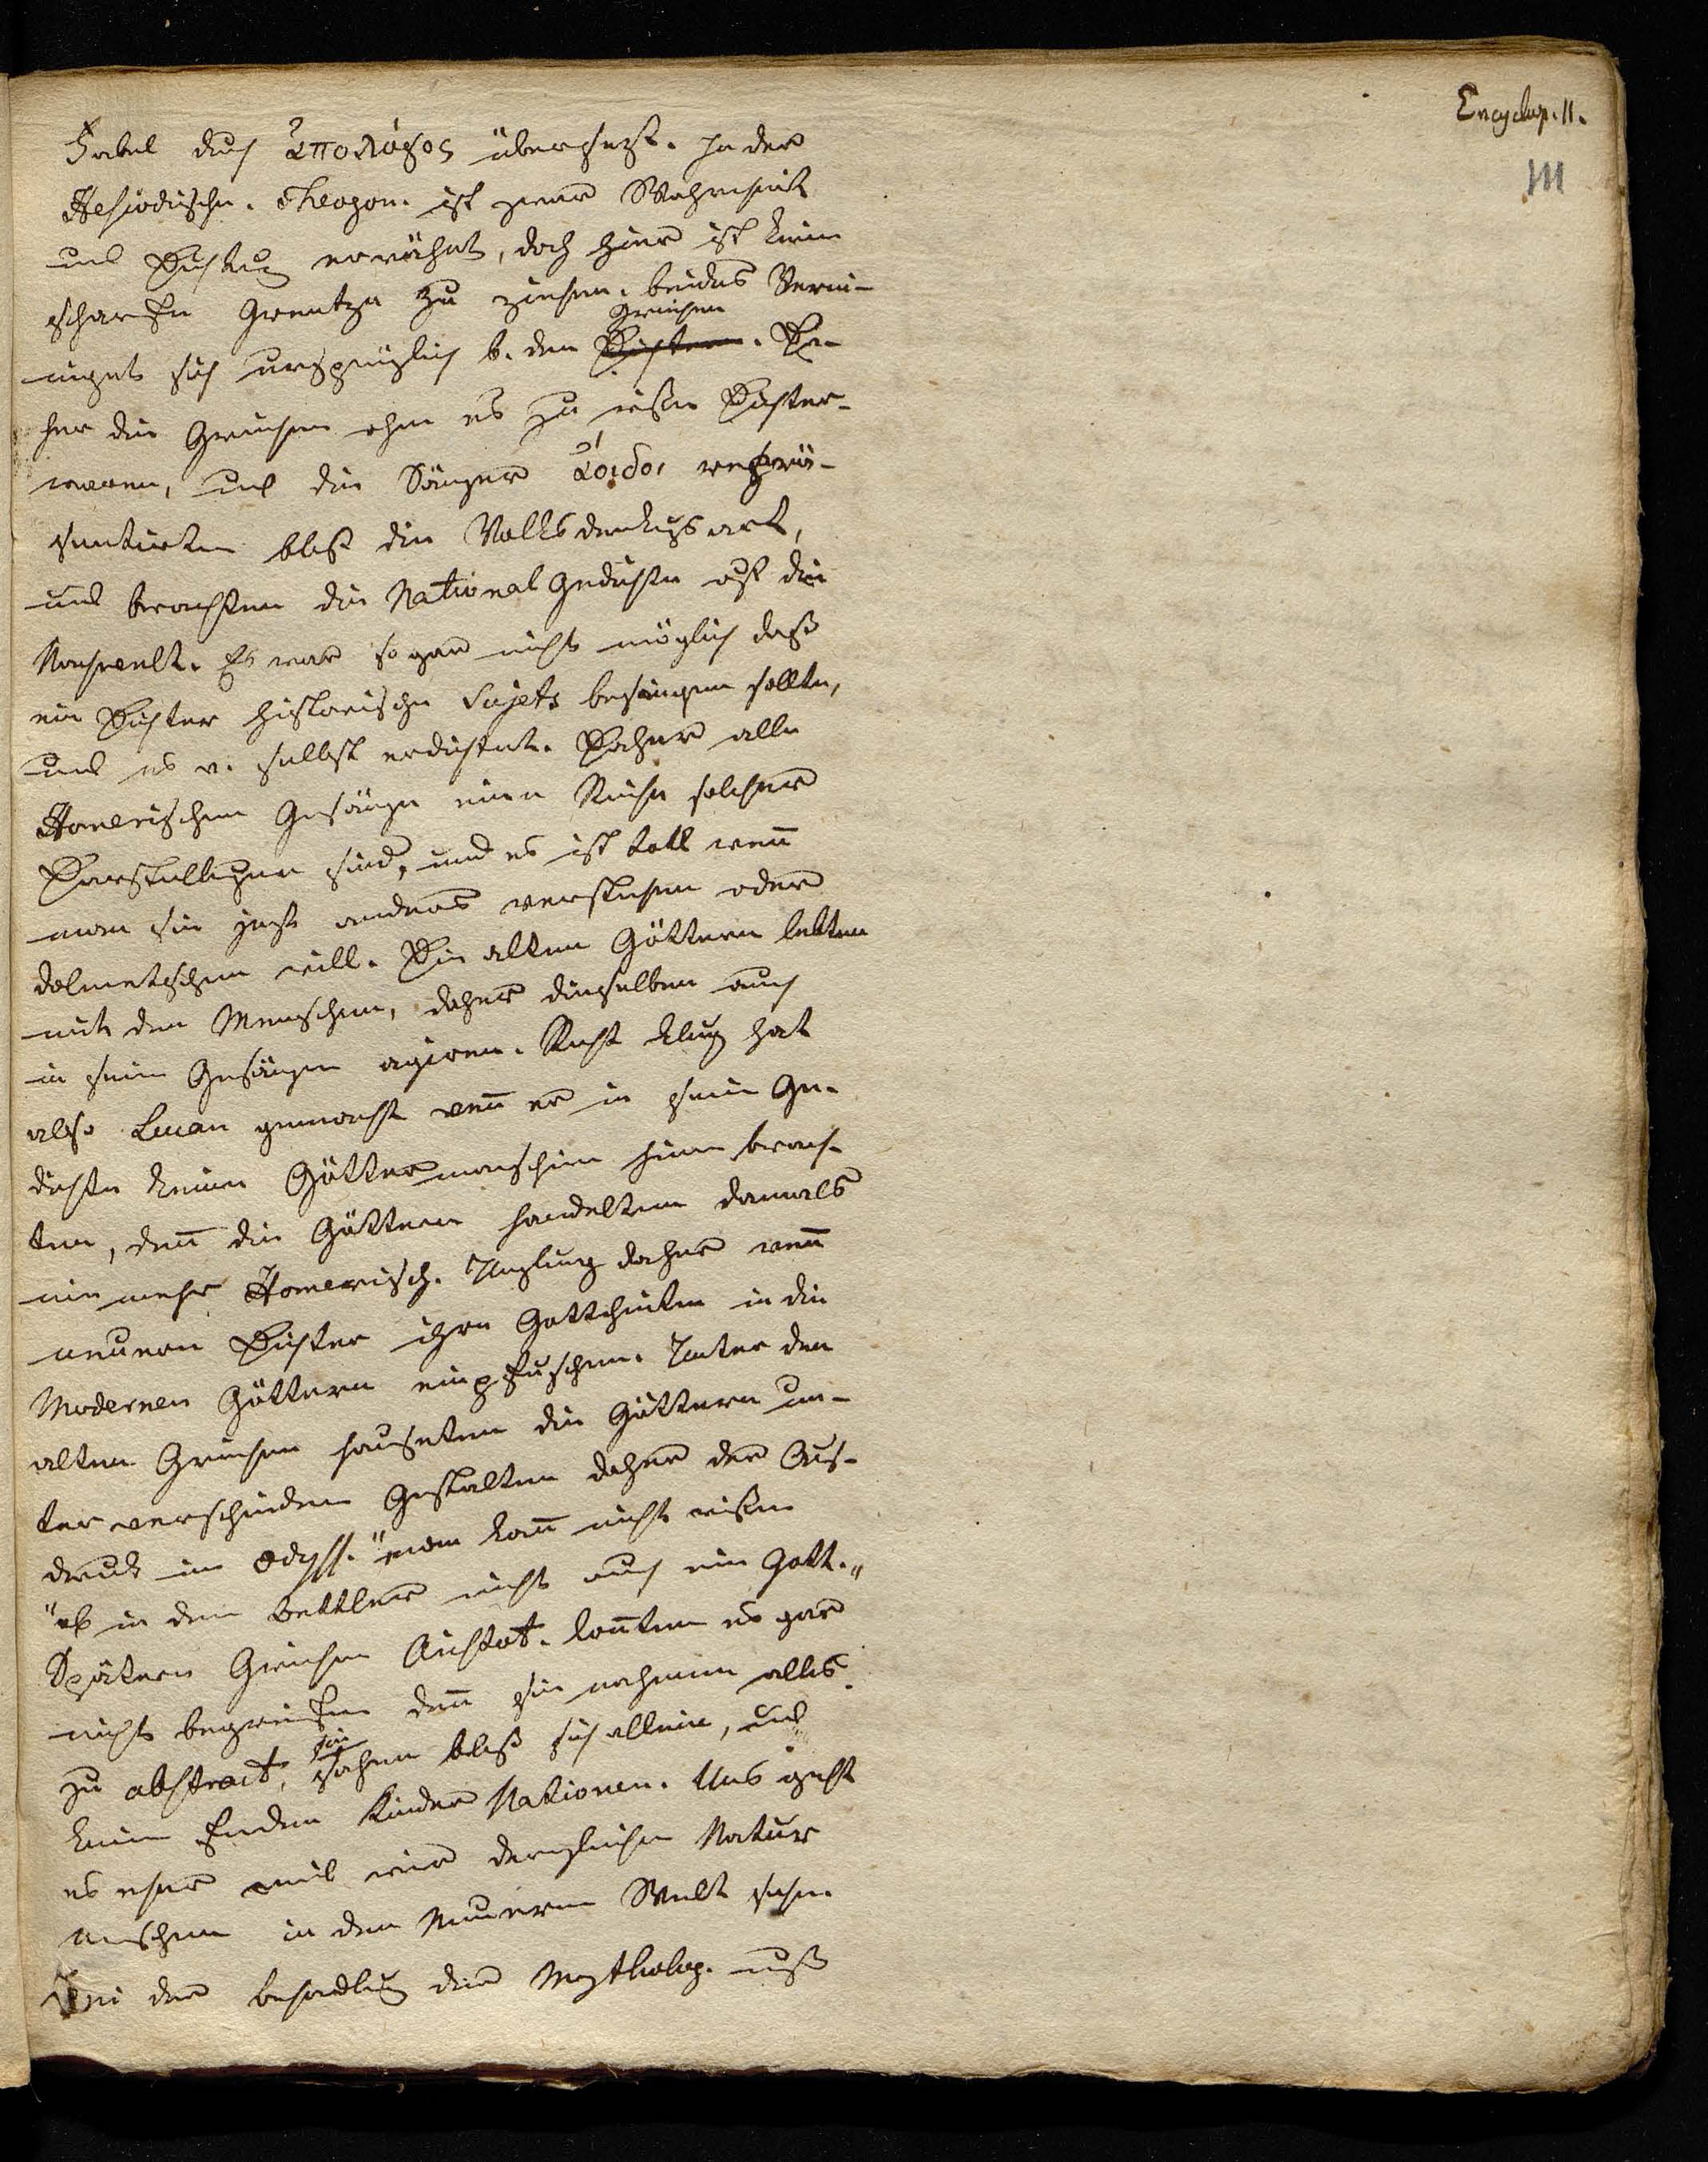 Encyclop. II.
III
Fabel durch ἀπολόγος übersezt. In der
Hesiodischen. Theogon. ist zwar Wahrheit
und Dichtung erwähnt, doch hier ist keine
scharfe Grentze zu ziehen. beides Verei-
Griechen
nigte sich ursprünglich b. den Dichtern. Da-
her die Griechen ohne es zu wißen Dichter
waren, und die Sänger ἀοιδοι reprä-
sentirten bloß die Volksdenkungsart,
und brachten die National Gedichte auf die
Nachwelt. Es war so gar nicht möglich daß
ein Dichter historische Sujets besingen sollte,
und es v. selbst erdichtet. Daher alle
Homerischen Gesänge eine Reihe solcher
Darstellungen sind, und es ist toll wen̄
man sie jezt anders verstehen oder
dolmetschen will. Die alten Göttern lebten
mit den Menschen, daher dieselben auch
in sein Gesängen agiren. Recht klug hat
also Lucan gemacht wen̄ er in sein Ge-
dichte keine Göttermaschien hinn brach-
ten, den̄ die Göttern handelten damals
nie mehr Homerisch. Unglug daher wen̄
neuern Dichter ihre Gottheiten in die
Modernen Göttern einpfuschen. Unter den
alten Griechen hauseten die Göttern un-
ter verschieden Gestalten daher der Aus-
druck im Odyss. "man kan̄ nicht wißen
"ob in dem Bettler nicht auch ein Gott."
Spätern Griechen Aristot. kon̄ten es gar
nicht begreifen den̄ sie nahmen alles
sie
zu abstract, sahen bloß sich allein, und
keine fremden Kinder Nationen. Uns geht
es eher weil wir dergleichen Natur
menschen in der Neueren Welt sehen
Bei der behandlung der Mytholog. muß